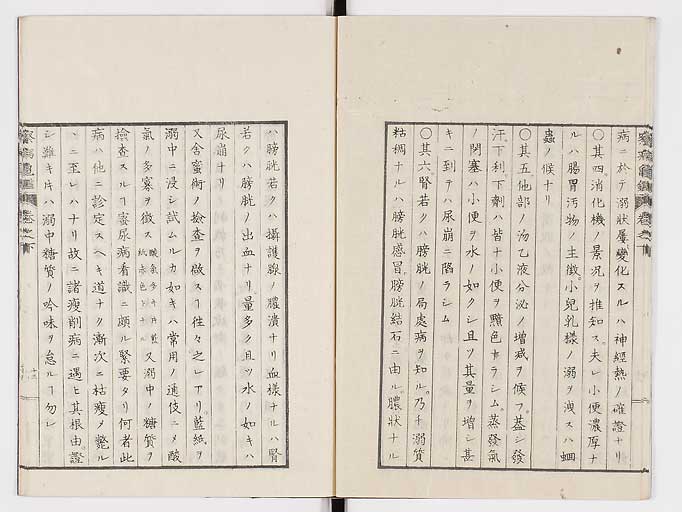 病ニ於テ溺狀屢變化スルハ神經熱ノ確證ナリ
〇其四消化機ノ景況ヲ推知ス。夫レ小便濃厚ナ
ルハ腸胃汚物ノ主徵。小兒乳樣ノ溺ヲ洩スハ蛔
蟲ノ候ナリ
〇其五他部ノ泌乙液分泌ノ增減ヲ候フ。蓋シ發
汗。下利。下劑ハ皆ナ小便ヲ贖色ナラシム。蒸發氣
ノ閉塞ハ小便ヲ水ノ如クシ且ツ其量ヲ增シ甚
キニ到テハ尿崩ニ陷ラシム
〇其六腎若クハ膀胱ノ局處病ヲ知ル。乃チ溺質
粘稠ナルハ膀胱感冒。膀胱結石ニ由ル。膿狀ナル
ハ膀胱若クハ攝護腺ノ膿潰ナリ血樣ナルハ腎
若クハ膀胱ノ出血ナリ。量多ク且ツ水ノ如キハ
尿崩ナリ
又舍蜜術ノ撿查ヲ做スヿ徃々之レアリ藍紙ヲ
溺中ニ浸シ試ムルカ如キハ常用ノ通伎ニメ酸
氣ノ多寡ヲ徵ス酸氣多キ片ハ藍紙赤色トナル又溺中ノ糖質ヲ
撿查スルヿ蜜尿病看識ニ頗ル緊要タリ何者此
病ハ他ニ診定スヘキ道ナク漸次ニ枯瘦メ斃ル
ヽニ至レハナリ故ニ諸瘦削病ニ遇ヒ其根由。證
シ難キ片ハ溺中糖質ノ吟味ヲ怠ルヿ勿レ